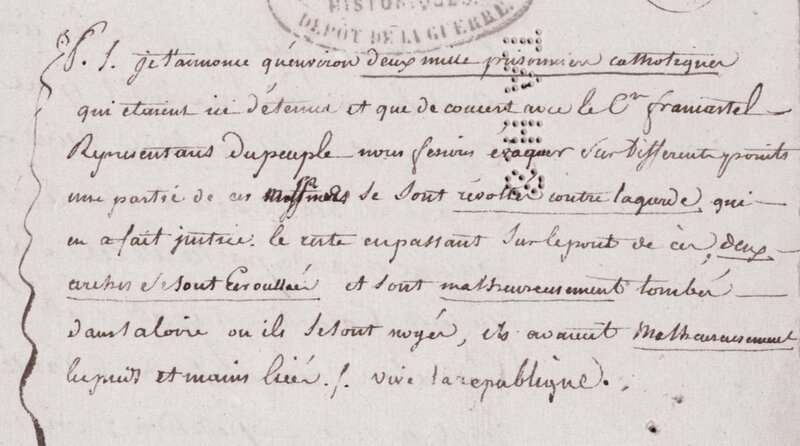 HISTORIQUES.
DÉPÔT DE LA GUERRE.
P. S. je t'annonce qu'environ deux mille prisonnier catholiques
qui etaient ici détenus et que de concert avec le C.en francastel
Representans du peuple nous fesions évaquer sur Different points
une partie de ces se sont révolter contre la garde, qui
en a fait justice. le reste en passant sur le pont de cèz, deux
arches se sont Ecroullée et sont malheureusement tombé
dans la loire ou ils se sont noyér, ils avaient Malheureusement
les pieds et mains liéér. /. vive la republique.